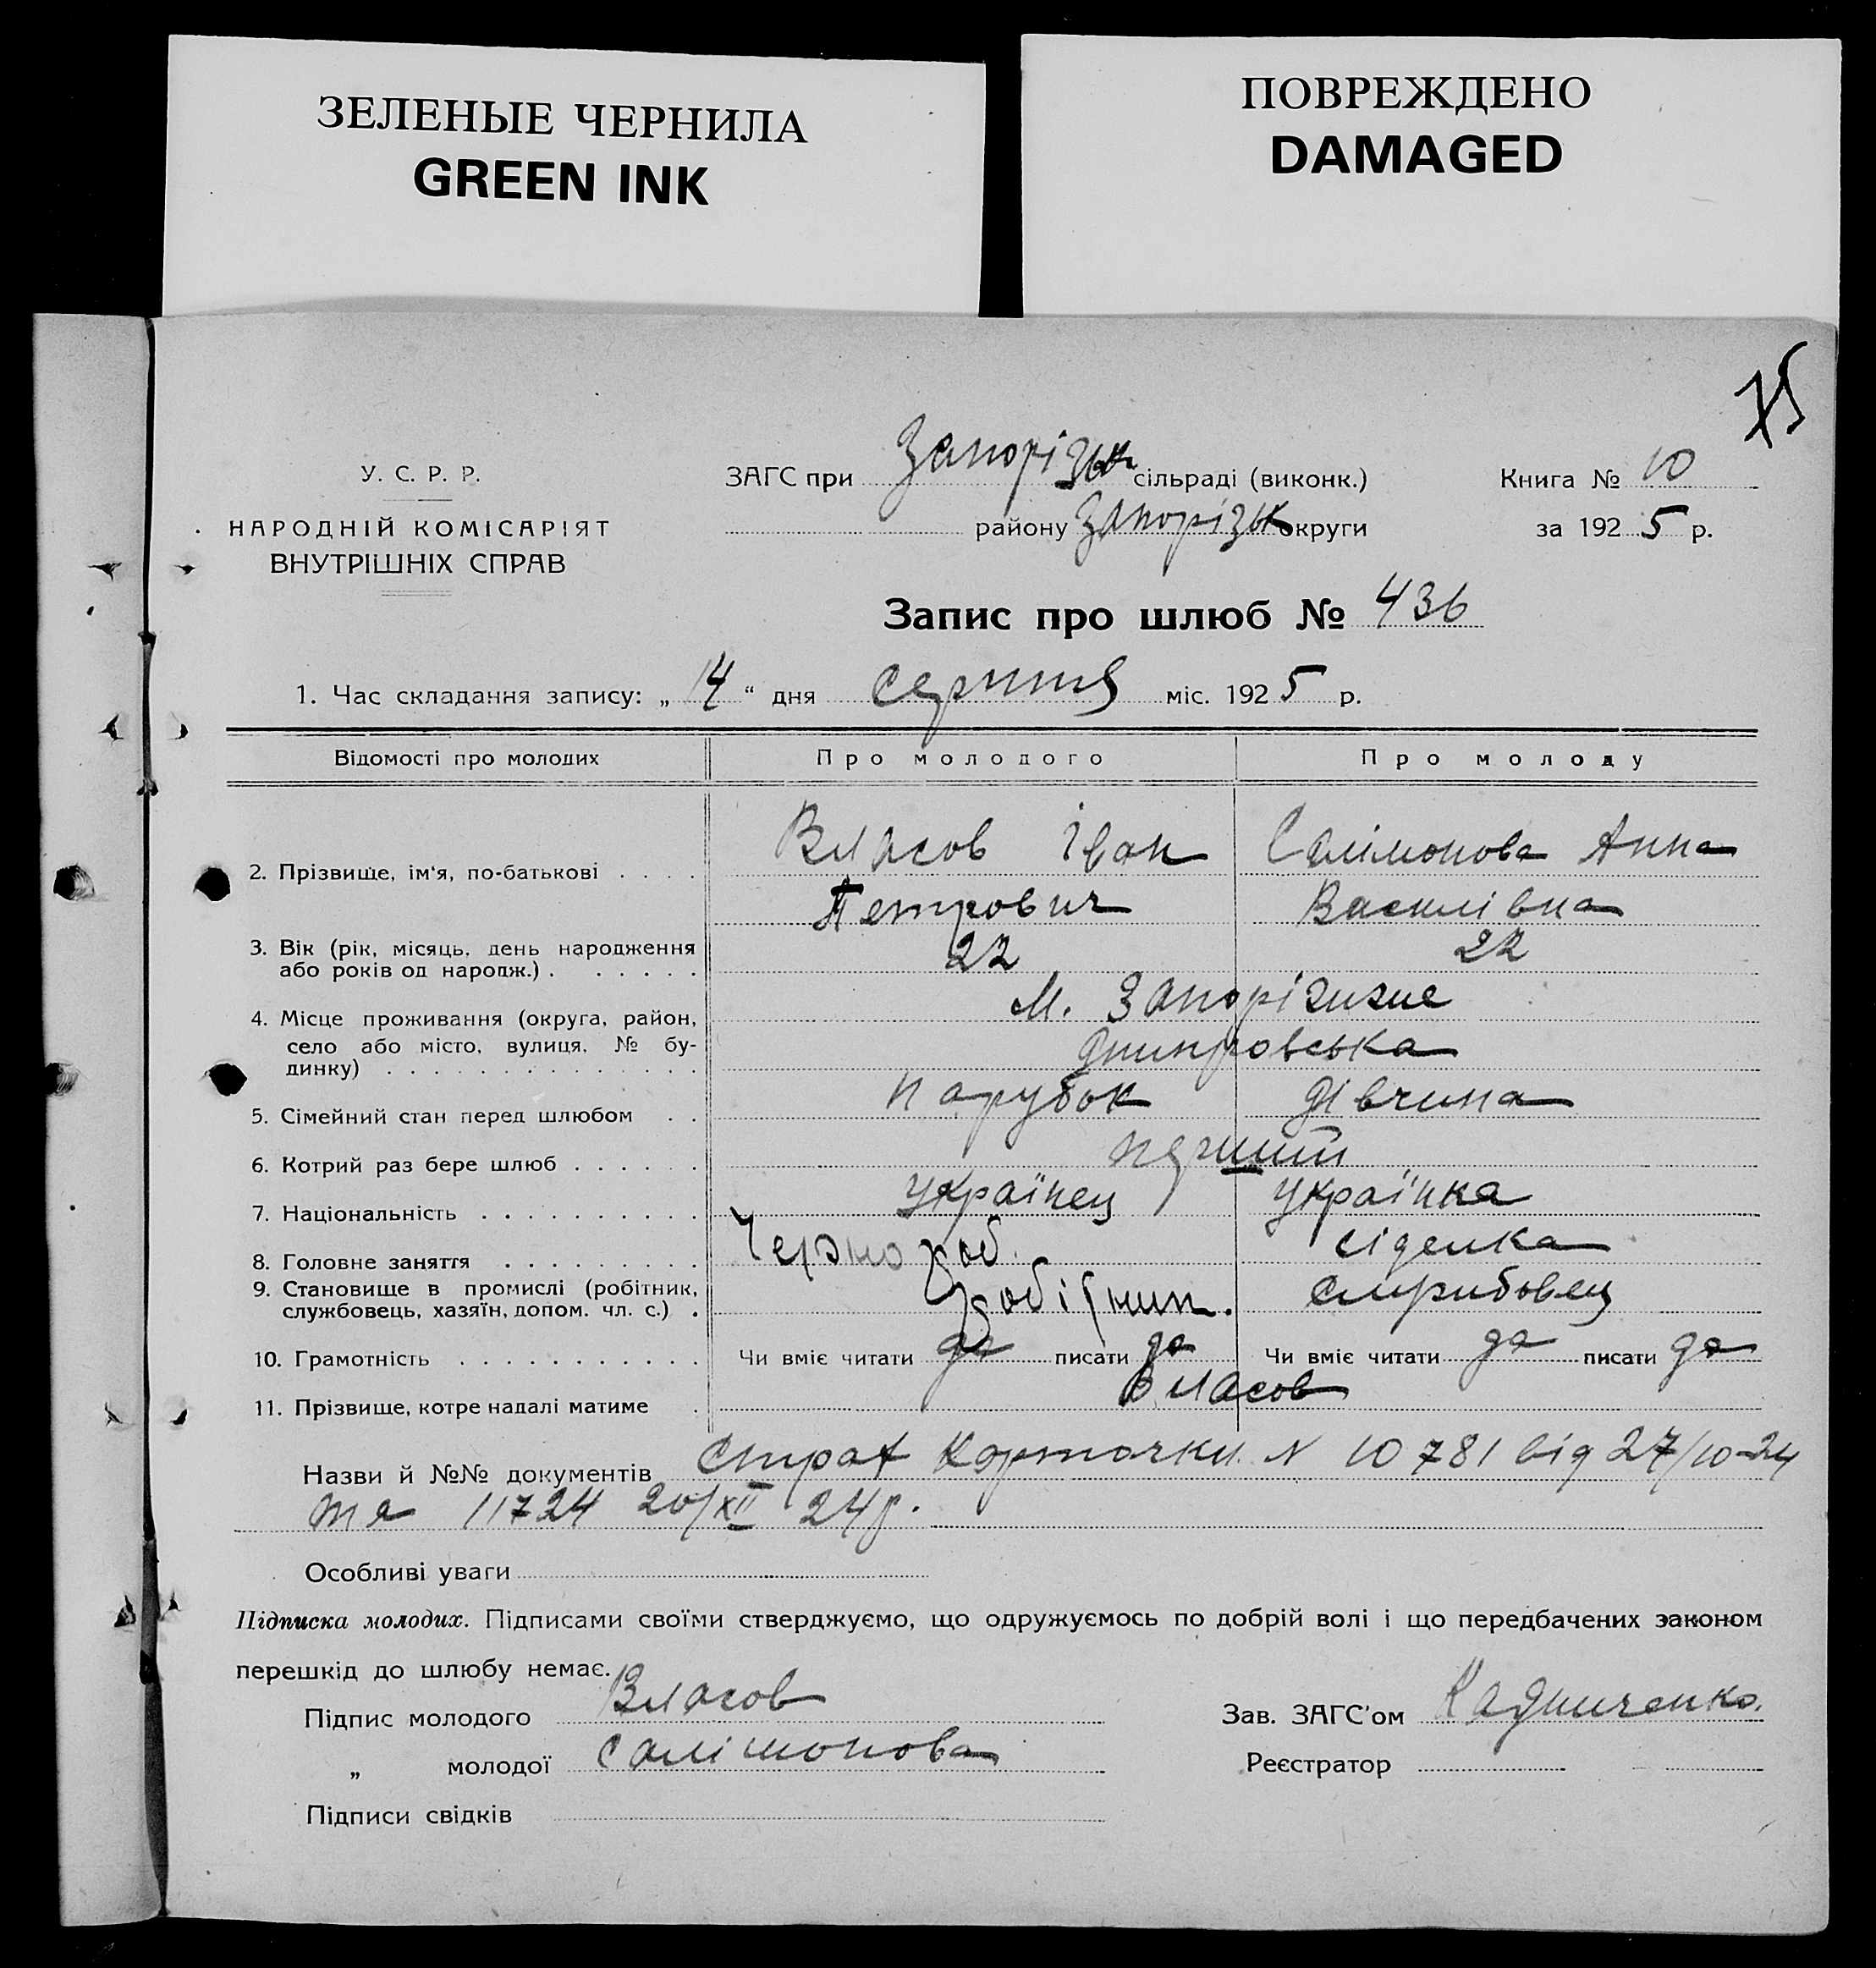 ЗЕЛЕНЫЕ ЧЕРНИЛА
GREEN INK
ПОВРЕЖДЕНО
DAMAGED
75
У. С. Р. Р.
НАРОДНІЙ КОМІСАРІЯТ
ВНУТРІШНІХ СПРАВ
ЗАГС при Запорізьк сільраді (виконк.)
району Запорізьк округи
Книга № 10
за 1925 р.
Запис про шлюб № 436
1. Час складання запису: „14“ дня серпня міс. 1925 р.
Відомості про молодих Про молодого Про молоду
2. Прізвище, ім'я, по-батькові . . . . Власов Іван Салімонова Анна
Петрович Василівна
3. Вік (рік, місяць, день народження
або років од народж.) . . . . . . 22 22
4. Місце проживання (округа, район,
село або місто, вулиця, № бу-
динку) . . . . . . . . . . . . . .
М. Запоріжже
Днипровська
5. Сімейний стан перед шлюбом . . парубок дівчина
6. Котрий раз бере шлюб . . . . . . перший
7. Національність . . . . . . . . . . українец українка
8. Головне заняття . . . . . . . . . Чернороб. сіделка
9. Становище в промислі (робітник,
службовець, хазяїн, допом. чл. с.) . робітник.
10. Грамотність . . . . . . . . . . . Чи вміє читати да писати да Чи вміє читати да писати да
11. Прізвище, котре надалі матиме . Власов
Назви й №№ документів Страх карточки N 10781 від 27/10-24
та 11724 20/XII 24р.
Особливі уваги
Підписка молодих. Підписами своїми стверджуємо, що одружуємось по добрій волі і що передбачених законом
перешкід до шлюбу немає.
Підпис молодого Власов
„ молодої Салімонова
Підписи свідків
Зав. ЗАГС'ом
Реєстратор